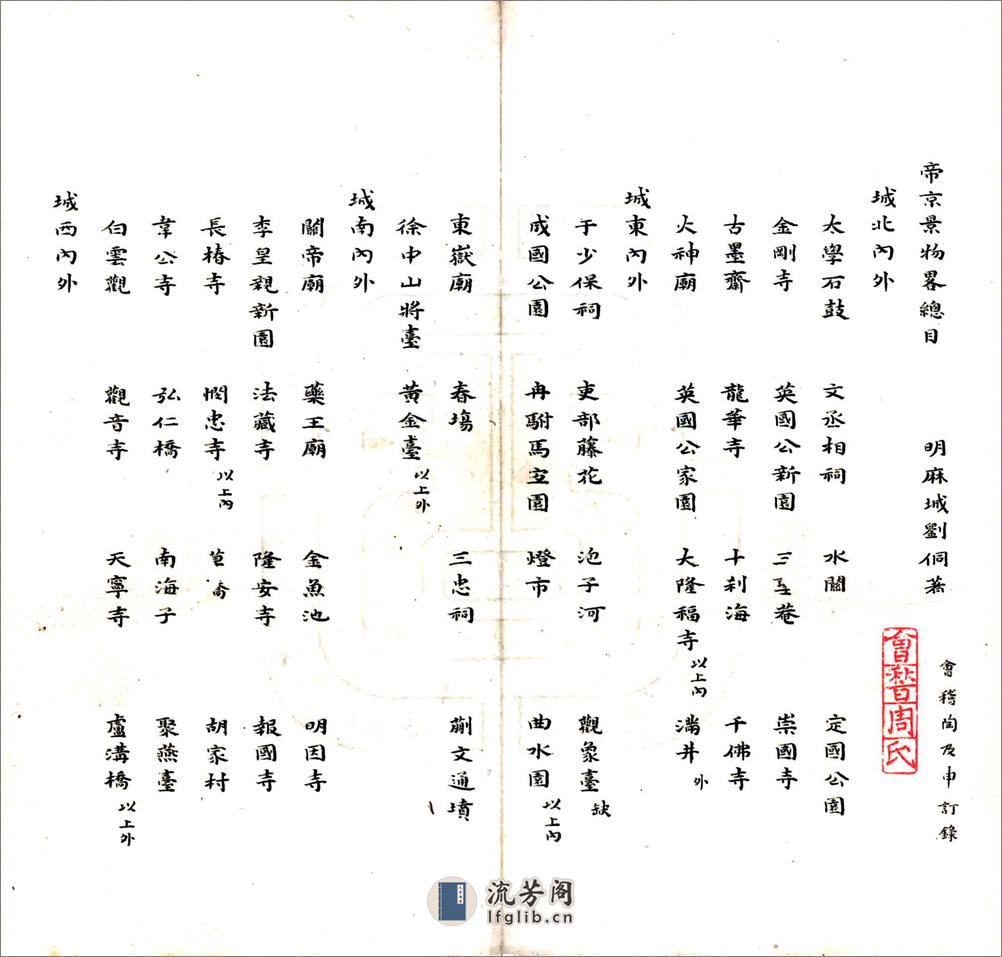 帝京景物畧總目　明麻城劉侗著
會稽陶及申訂錄
會稽周氏
城北內外
太學石鼓　文丞相祠　水關　定國公園
金剛寺　英國公新園　三聖菴　崇國寺
古墨齋　龍華寺　十刹海　千佛寺
火神廟　英國公家園　大隆福寺以上內　滿井外
城東內外
于少保祠　吏部藤花　泡子河　觀象臺缺
成國公園　冉駙馬宜園　燈市　曲水園以上內
東嶽廟　春塲　三忠祠　蒯文通墳
徐中山將臺　黃金臺以上外
城南內外
關帝廟　藥王廟　金魚池　明因寺
李皇親新園　法藏寺　隆安寺　報國寺
長椿寺　憫忠寺以上內　草橋　胡家村
韋公寺　弘仁橋　南海子　聚燕臺
白雲觀　觀音寺　天寧寺　盧溝橋以上外
城西內外
流芳阁
lfglib.cn